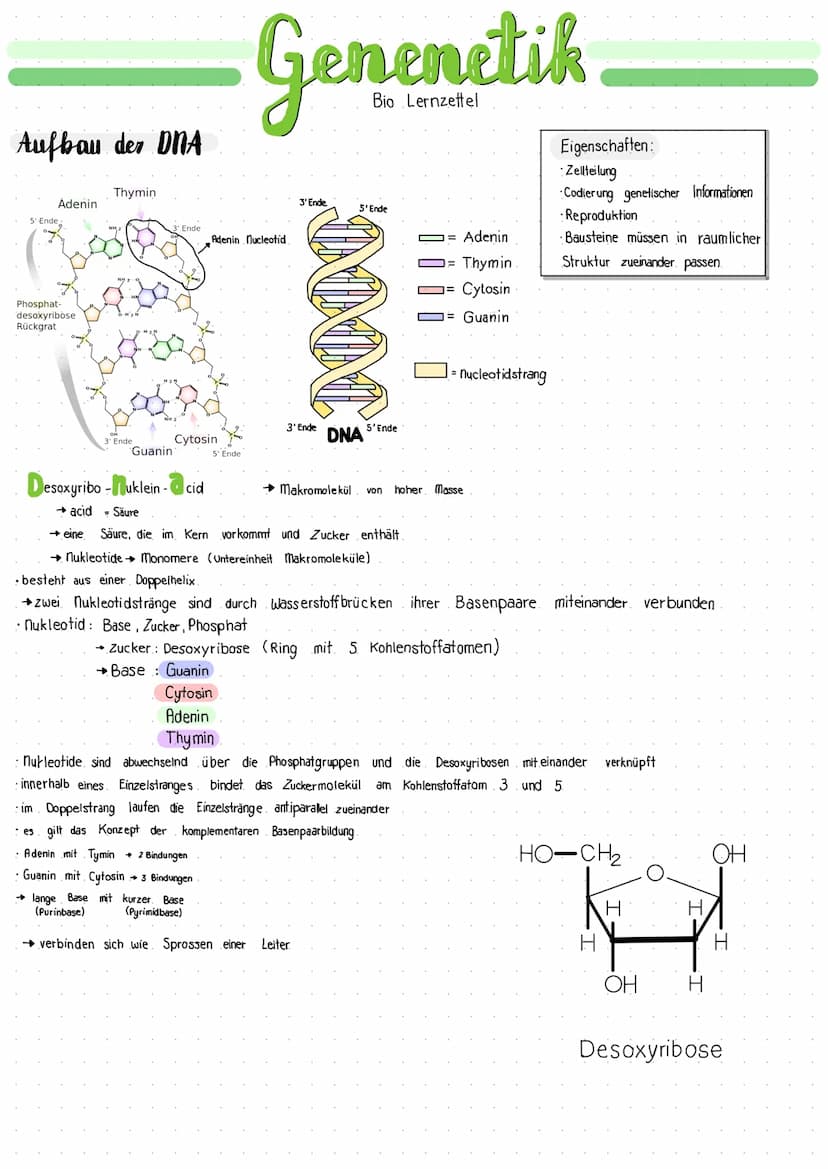 Genenetik
Bio Lernzettel
Aufbau der DNA
Eigenschaften:
· Zellteilung
· Codierung genetischer Informationen
· Reproduktion
· Bausteine müssen in raumlicher
Struktur zueinander passen
Thymin
Adenin
5' Ende
3' Ende
Adenin Nucleotid
Phosphat-
desoxyribose
Rückgrat
3' Ende
Cytosin
Guanin
5' Ende
3' Ende
5' Ende
= Adenin
= Thymin
= Cytosin
= Guanin
= Nucleotidstrang
3' Ende
DNA
5' Ende
Desoxyribo - Nuklein - acid
→ Makromolekül von hoher Masse
→ acid = Säure
→ eine Säure, die im Kern vorkommt und Zucker enthält
→ Nukleotide → Monomere (Untereinheit Makromoleküle)
· besteht aus einer Doppelhelix
→ zwei Nukleotidstränge sind durch Wasserstoffbrücken ihrer Basenpaare miteinander verbunden
· Nukleotid: Base, Zucker, Phosphat
→ Zucker: Desoxyribose (Ring mit 5 Kohlenstoffatomen)
→ Base : Guanin
Cytosin
Adenin
Thymin
· Nukleotide sind abwechselnd über die Phosphatgruppen und die Desoxyribosen miteinander verknüpft
· innerhalb eines Einzelstranges bindet das Zuckermolekül am Kohlenstoffatom 3 und 5
· im Doppelstrang laufen die Einzelstränge antiparallel zueinander
· es gilt das Konzept der komplementaren Basenpaarbildung
· Adenin mit Tymin → 2 Bindungen
· Guanin mit Cytosin → 3 Bindungen
→ lange Base mit kurzer Base
(Purinbase) (Pyrimidbase)
→ verbinden sich wie Sprossen einer Leiter
HO CH2 OH
O
H H
H H
OH H
Desoxyribose